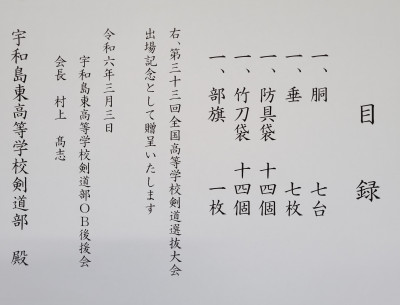 目録
一、胴 七台
一、垂 七枚
一、防具袋 十四個
一、竹刀袋 十四個
一、部旗 一枚
右、第三十三回全国高等学校剣道選抜大会
出場記念として贈呈いたします
令和六年三月三日
宇和島東高等学校剣道部OB後援会
会長 村上 髙志
宇和島東高等学校剣道部 殿